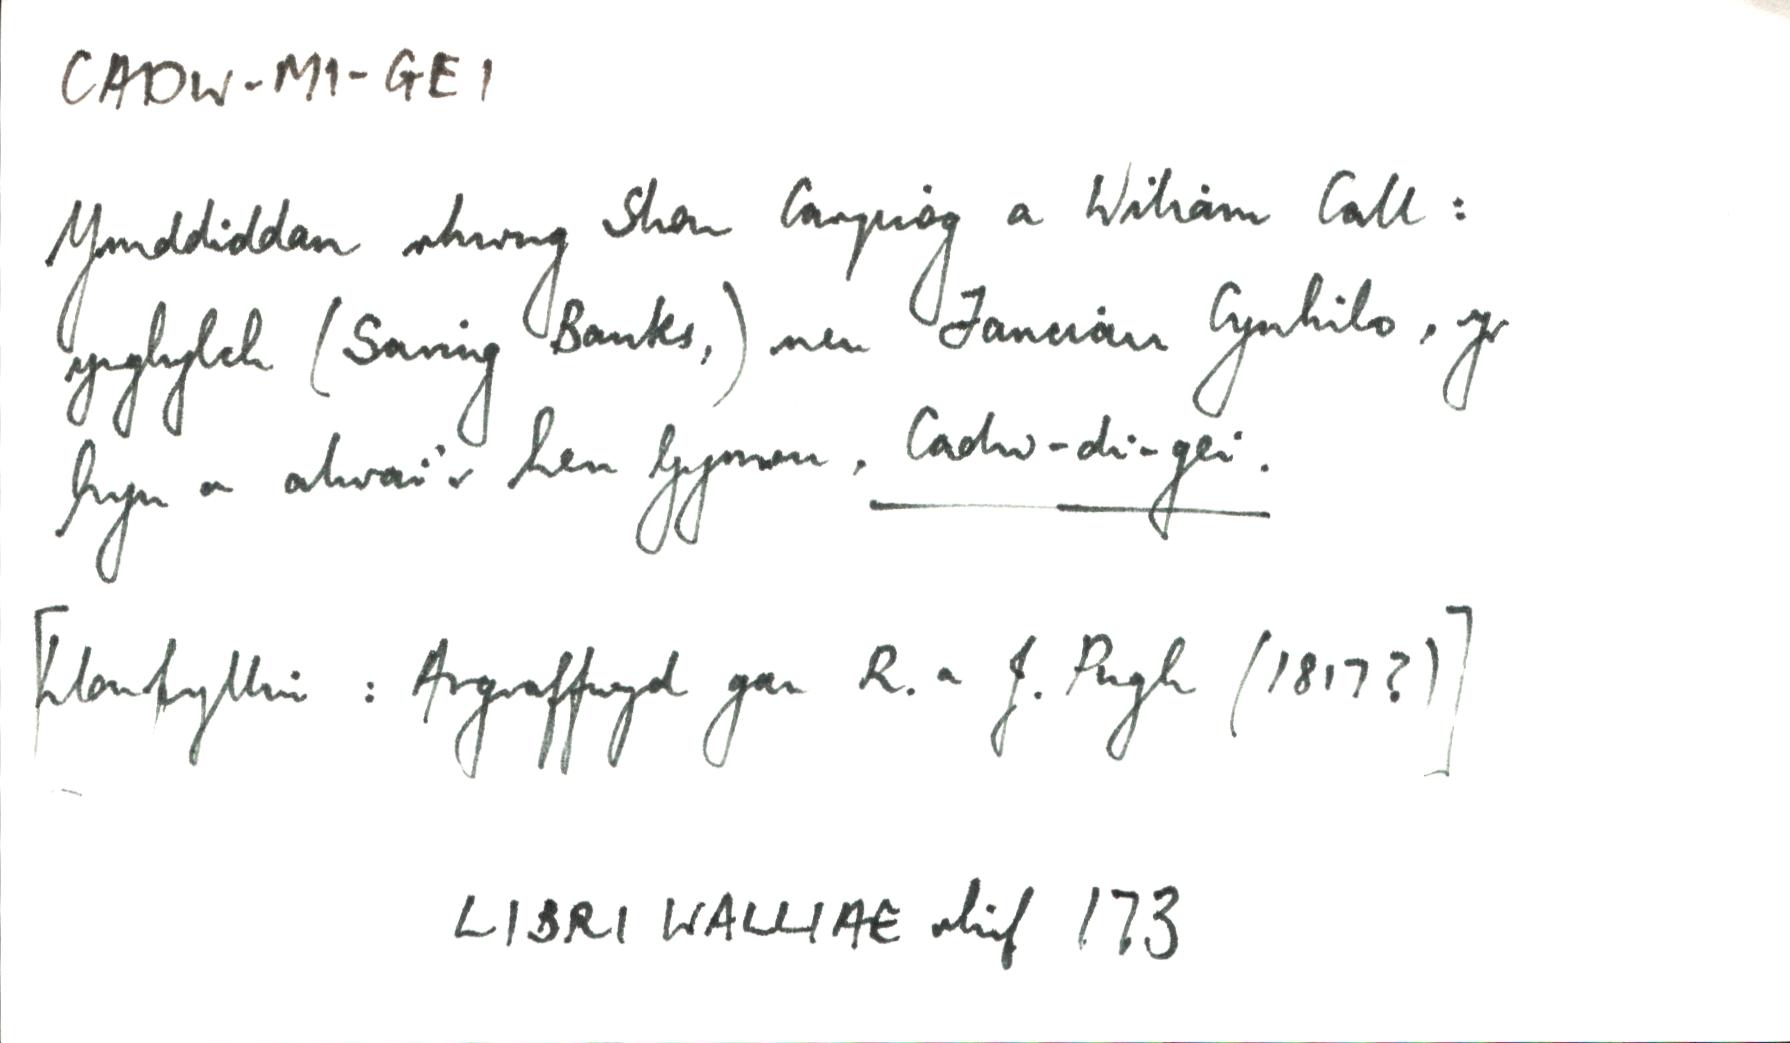 CADW-MI-GEI
Ymddiddan rhwng Shon Carpiog a Wiliam Call:
ynghylch (Saving Banks,) neu Fanciau Cynhilo, yr
hyn a alwai'r hen Gymry, Cadw-di-gei.
[Llanfyllin: Argraffwyd gan R. a J. Pugh (1817?)]
LIBRI WALLIAE rhif 173